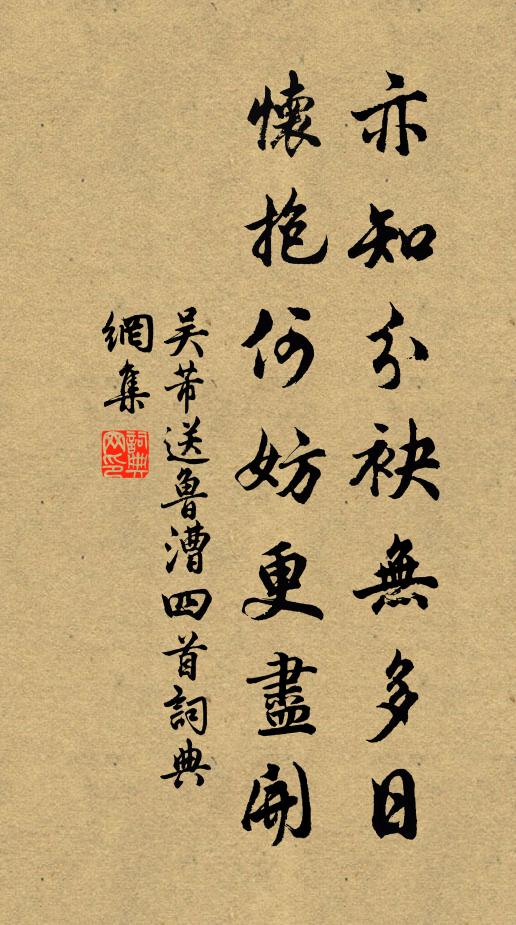 亦知分袂無多日
懷抱何妨更盡開
吴芾送魯漕四首詞典
網集
詞典
网印